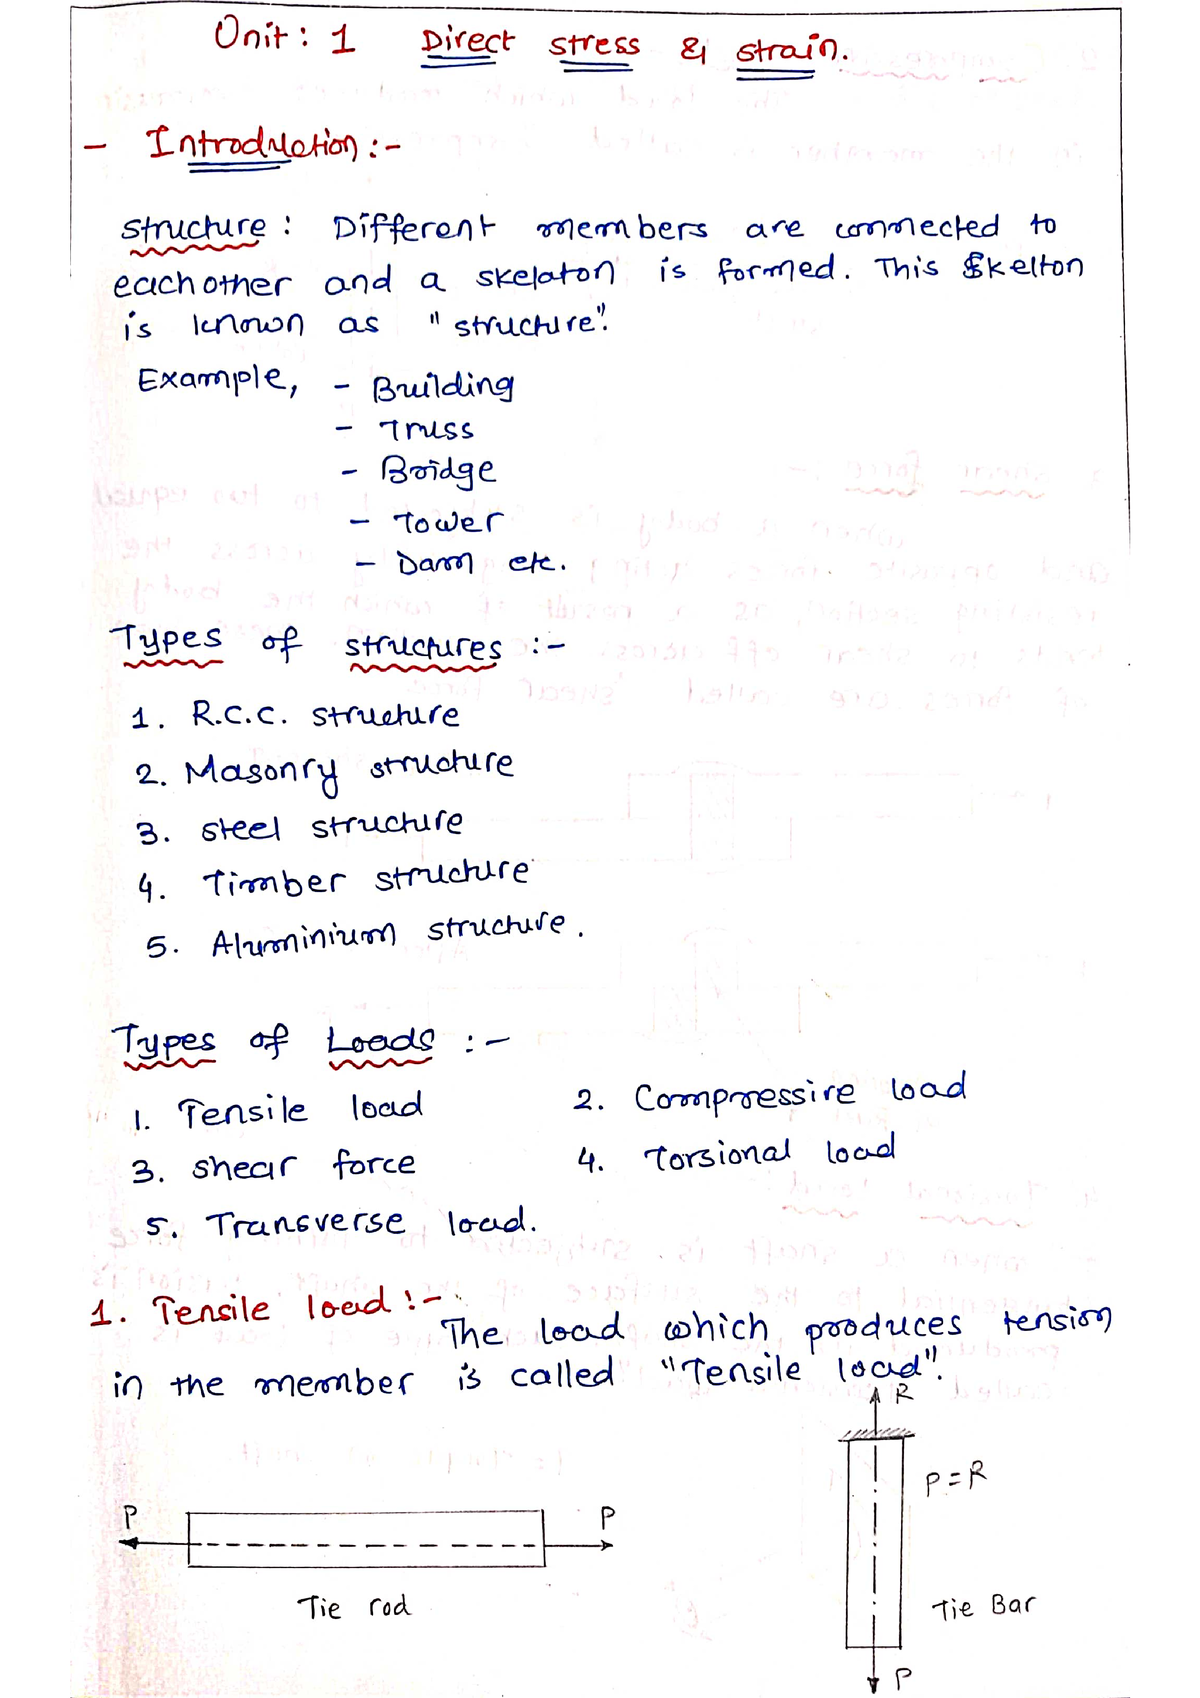 Unit: 1 Direct stress & strain.
- Introduction :-
structure : Different members are connected to
each other and a skelaton is formed. This skelton
is known as "structure".
Example, - Building
- Truss
- Bridge
- Tower
- Dam etc.
Types of structures :-
1. R.C.C. structure
2. Masonry structure
3. steel structure
4. Timber structure
5. Aluminium structure.
Types of Loads :-
1. Tensile load 2. Compressive load
3. shear force 4. Torsional load
5. Transverse load.
1. Tensile load :-
The load which produces tension
in the member is called "Tensile load".
R
P = R
P P
Tie rod
Tie Bar
P